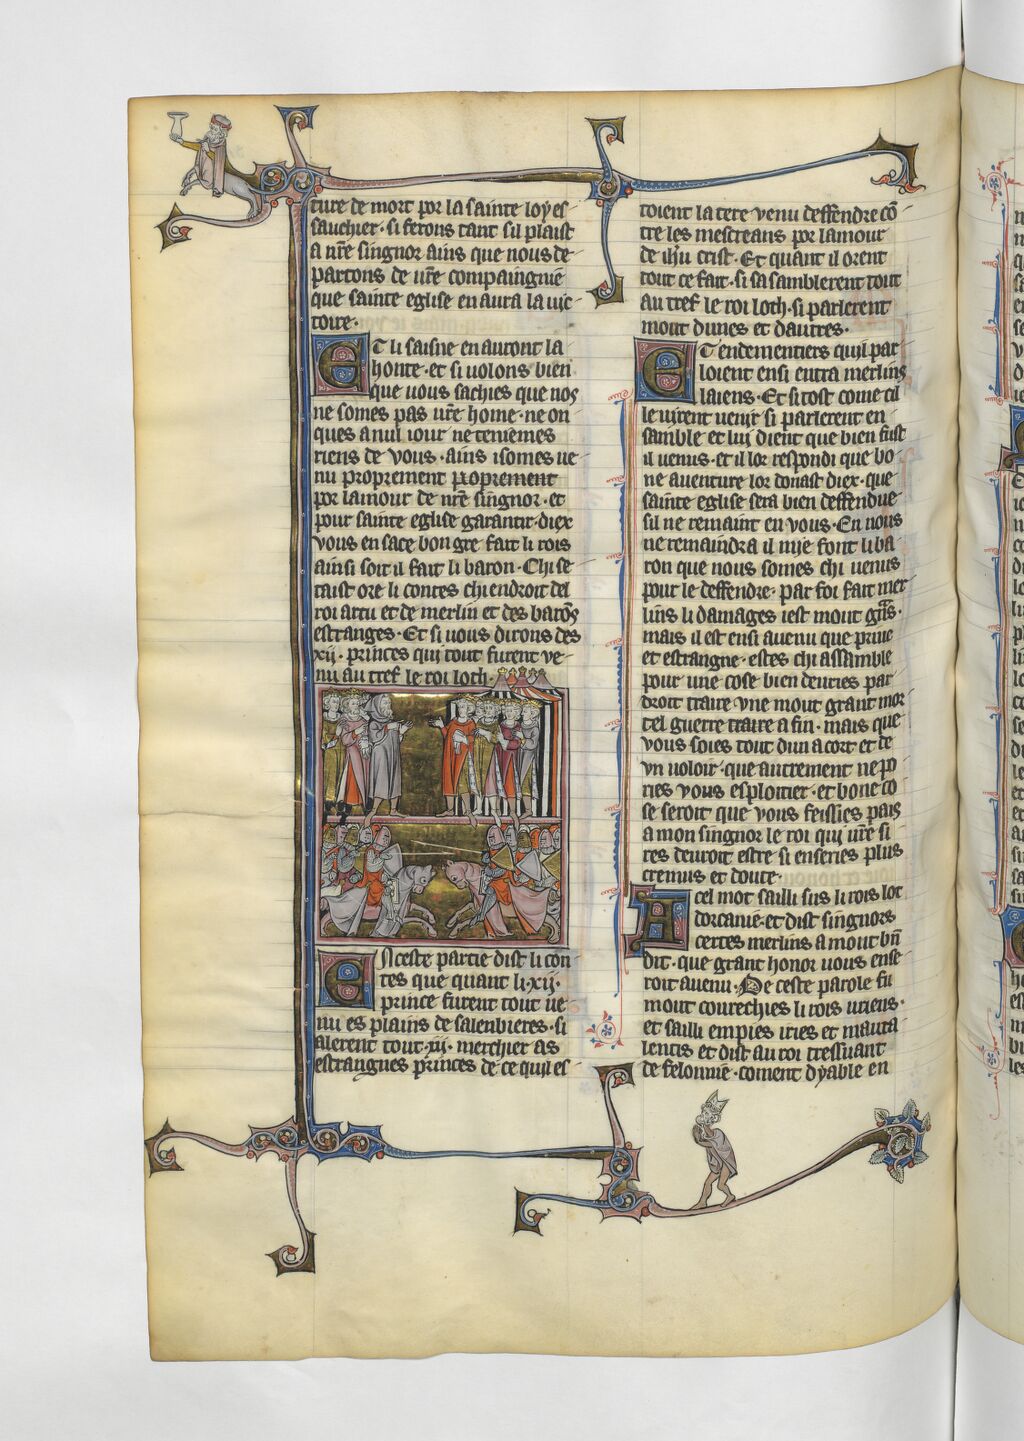 ture de mort por la sainte loy es-
sauchier· si ferons tant sil plaist
a nr̄e singnor ains que nous de-
partons de vr̄e compaingnie
que sainte eglise en aura la vic-
toire·
Et li saisne en auront la
honte· et si uolons bien
que uous sachies que nos
ne somes pas vr̄e home· ne on
ques a nul iour ne tenismes
riens de vous· ains i somes ue
nu proprement proprement
por lamour de nr̄e singnor· et
pour sainte eglise garantir· diex
vous en sace bon gre fait li rois
ainsi soit il fait li baron· Chi se
taist ore li contes chi endroit del
roi artu et de merlin et des barōs
estranges· Et si uous dirons des
xij· princes qui tout furent ve-
nu au tref le roi loch·
En ceste partie dist li con-
tes que quant li·xij·
prince furent tout ue
nu es plains de salenbieres· si
alerent tout·xij· merchier as
estrangues princes de ce quil es-
toient la tere venu deffendre cō-
tre les mescreans por lamour
de ih̄u crist· Et quant il orent
tout ce fait· si sa samblerent tout
au tref le roi loch· si parlerent
mout dunes et dautres·
Et endementiers quil par
loient ensi entra merlins
laiens· Et si tost come cil
le uirent uenir si parlerent en
samble et lui dient que bien fust
il uenus· et il lor respondi que bo-
ne auenture lor donast diex· que
sainte eglise sera bien deffendue
sil ne remaint en vous· En nous
ne remaindra il mie font li ba-
ron que nous somes chi uenus
pour le deffendre· par foi fait mer
lins li damages iest mout grās·
mais il est ensi auenu que priue
et estrangne· estes chi assamble
pour une cose bien deuries par
droit traire vne mout grant mor
tel guerre traire a fin· mais que
vous soies tout dun acort et de
vn uoloir· que autrement ne po
ries vous esploitier· et bone co
se seroit que vous feissies pais
a mon singnor le roi qui vr̄e si
res deuroit estre si en series plus
cremus et doute·
A cel mot sailli sus li rois lot
dorcanie· et dist singnors
certes merlins a mout bn̄
dit· que grant honor uous en se
roit auenu· De ceste parole fu
mout courechies li rois uriens·
et sailli em pies iries et mauta
lentis et dist au roi tressuant
de felonnie· coment dyable en